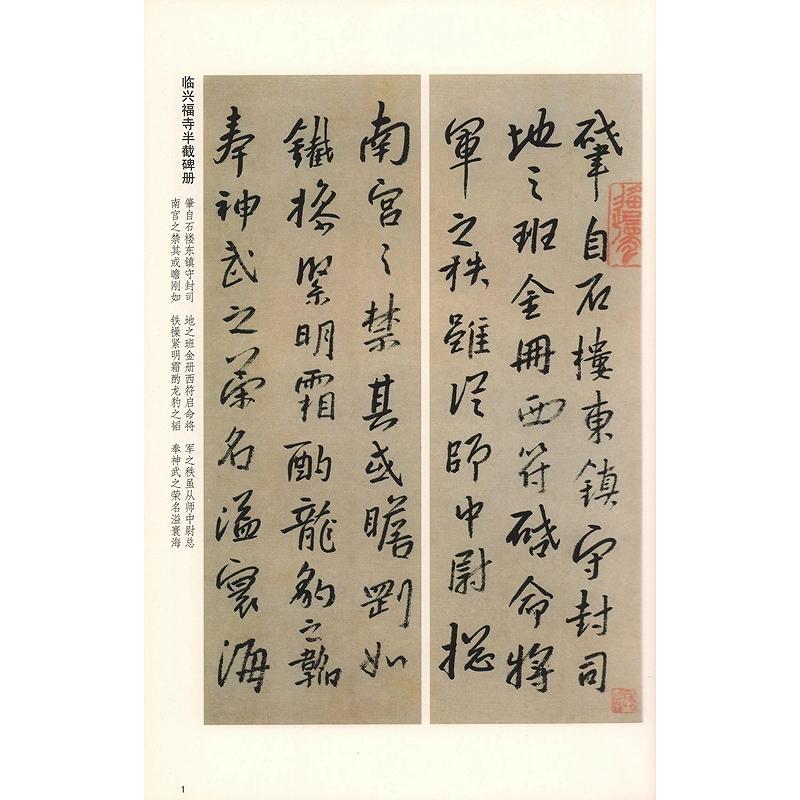 肇自石樓東鎮守封司
地之班金冊西符啓命將
軍之秩雖從師中尉揔
南宮之禁其或瞻剛如
鐵操緊明霜酌龍豹之韜
奉神武之榮名溢寰海
临兴福寺半截碑册
肇自石楼东镇守封司 地之班金册西符启命将 军之秩虽从师中尉总
南宫之禁其或瞻刚如 铁操紧明霜酌龙豹之韬 奉神武之荣名溢寰海
1